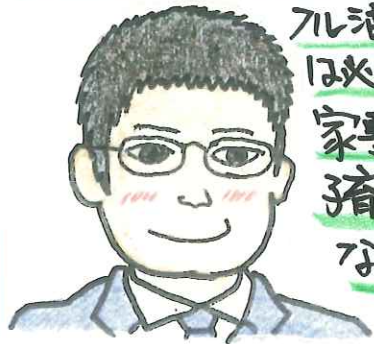 フル活
は必
家事
子育
な